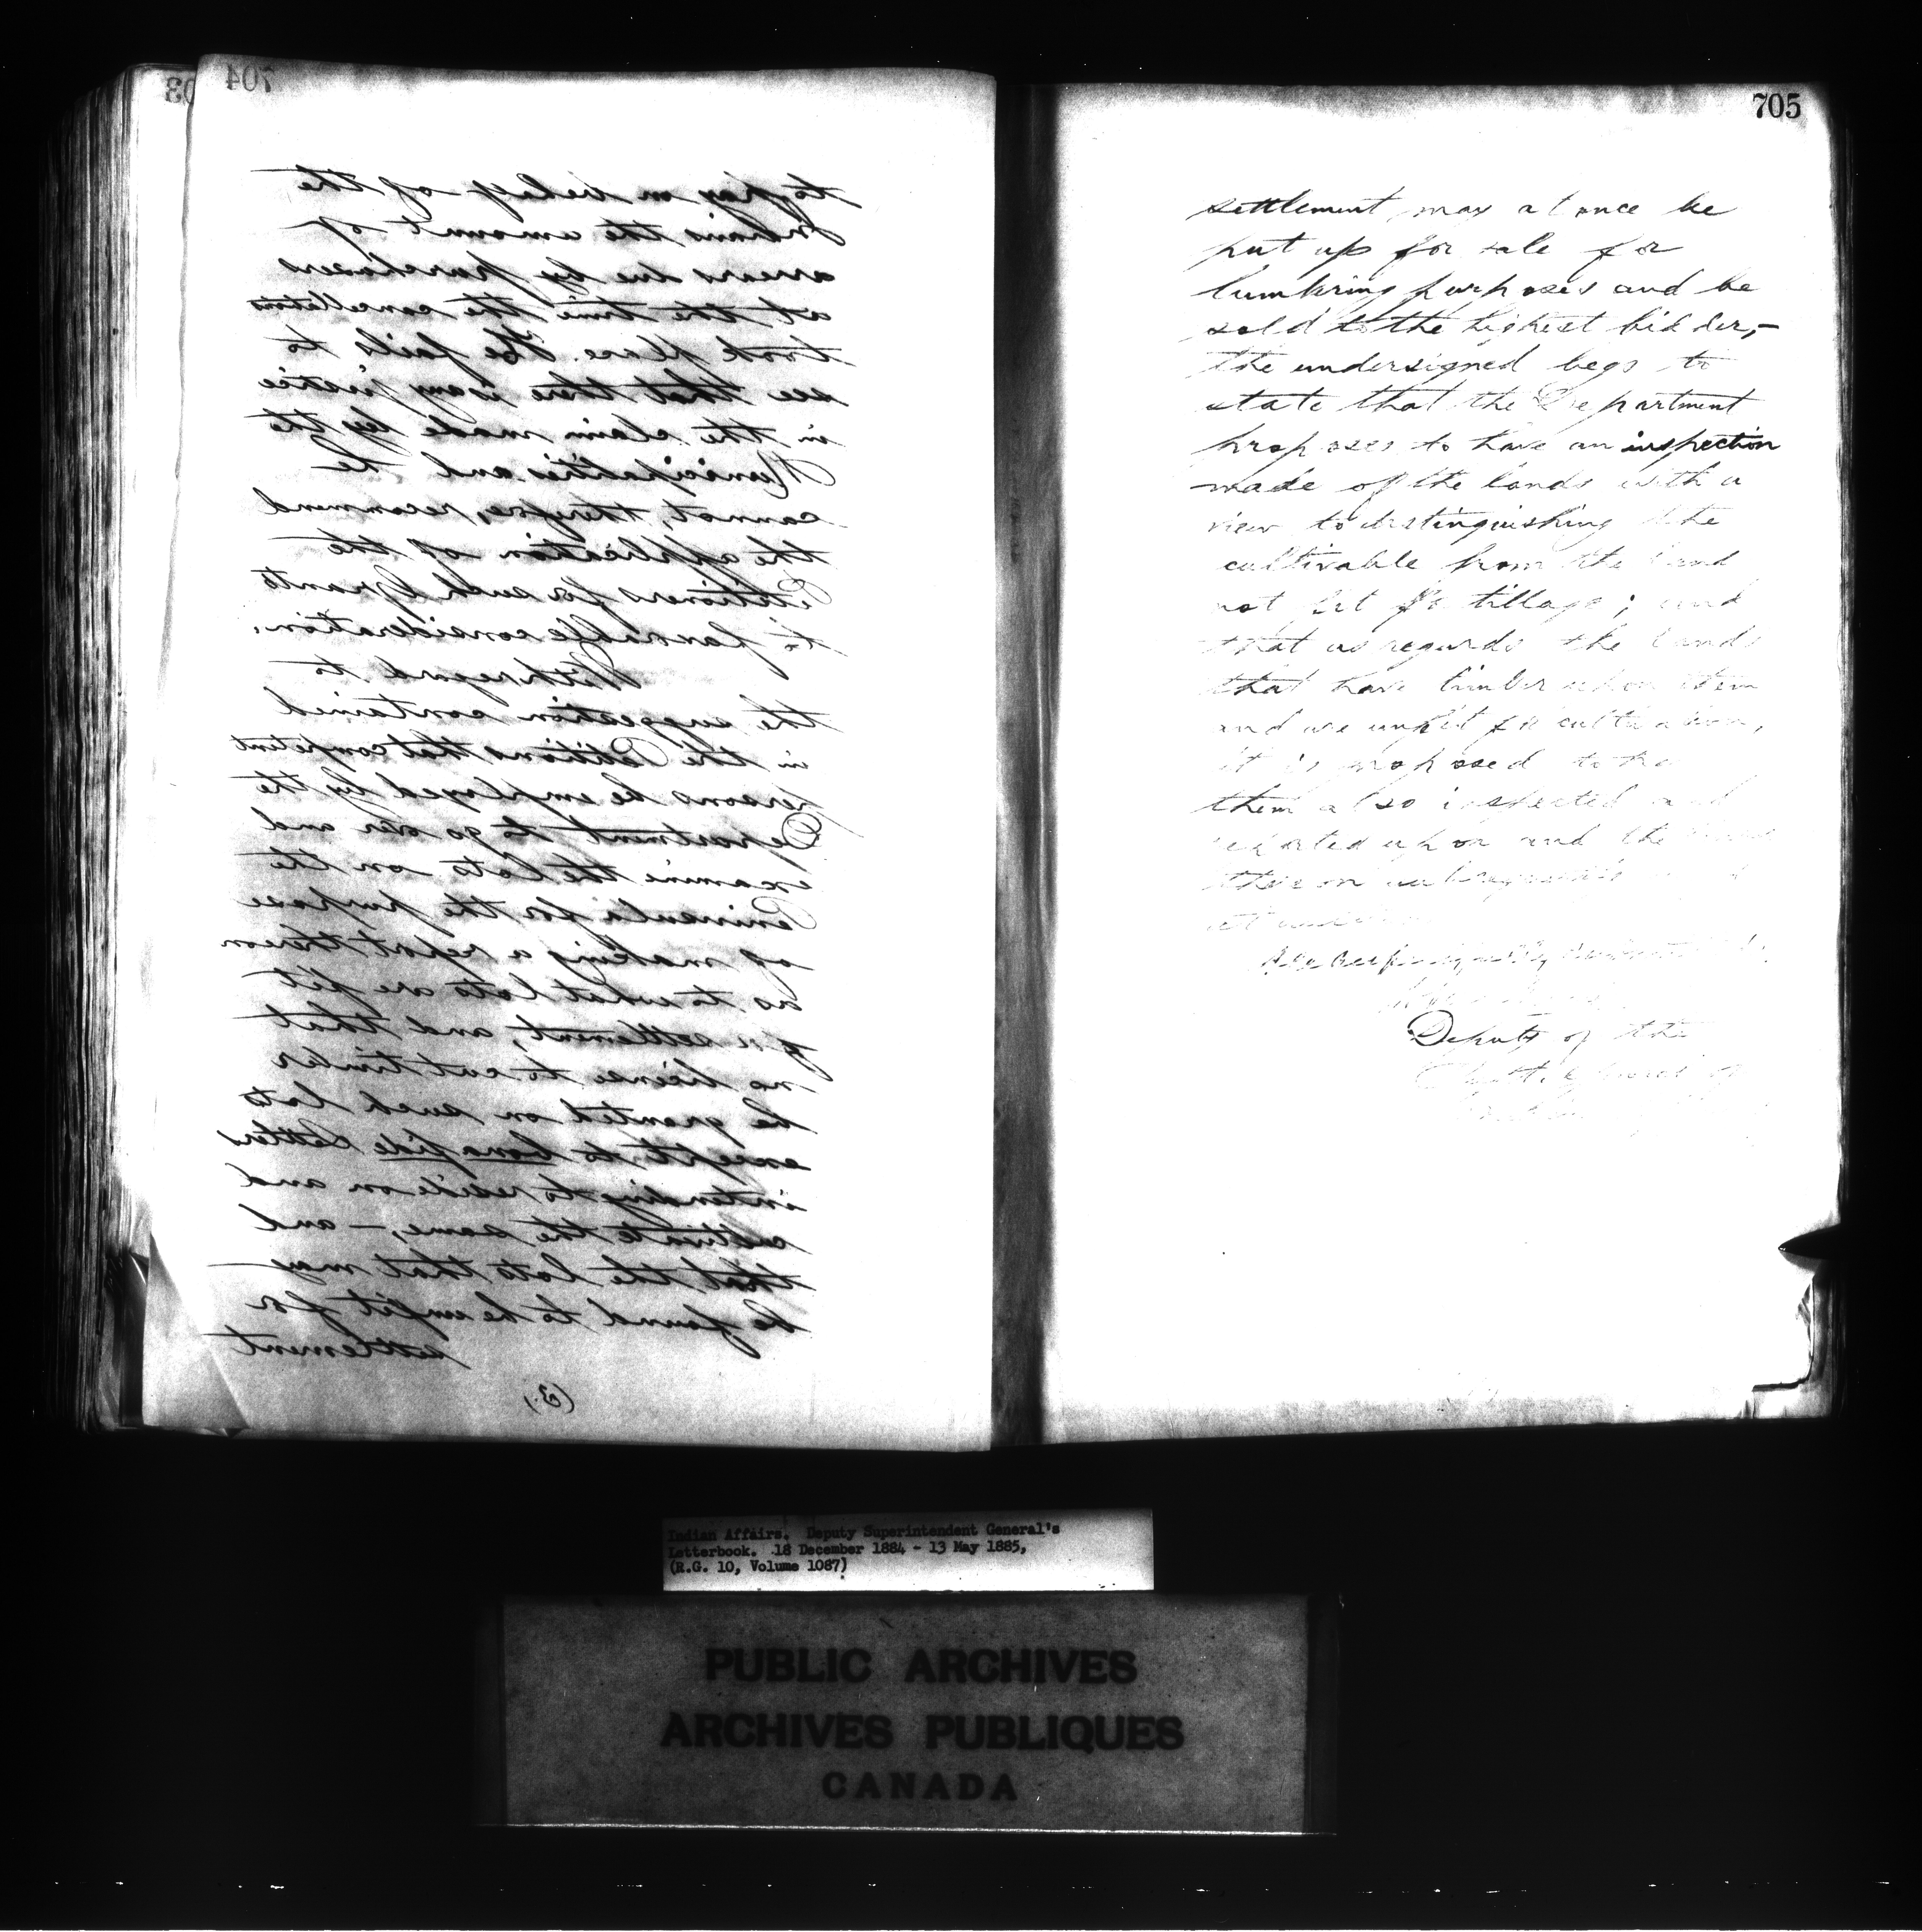 704
to pay on behalf of the
Indians the amount of
arrears due by purchasers
at the time the cancellation
took place. He fails to
see that there is any justice
in the claim made by the
Municipalities and he
cannot, therefore, recommend
the application of the
Petitioners for such Grants
to favorable consideration.
With regard to
the suggestion contained
in the Petitions that competent
persons be employed by the
Department to go over and
examine the lots on the
Peninsula for the purpose
of making a report thereon
as to what lots are fit
for settlement, and that
no license to cut timber
be granted on such lots
except to bona fide settlers
intending to reside on and
cultivate the same, – and
that the lots that may
be found to be unfit for
settlement
(3.)
705
settlement may at once be
put up for sale for
lumbering purposes and be
sold to the highest bidder, –
the undersigned begs to
state that the Department
proposes to have an inspection
made of the lands with a
view to distinguishing the
cultivable from the land
not fit for tillage; and
that as regards the lands
that have timber upon them
and are unfit for cultivation,
it is proposed to
them also inspected and
reported upon and the
thereon
Deputy of the
Indian Affairs. Deputy Superintendent General's
Letterbook. 18 December 1884 - 13 May 1885,
(R.G. 10, Volume 1087)
PUBLIC ARCHIVES
ARCHIVES PUBLIQUES
CANADA